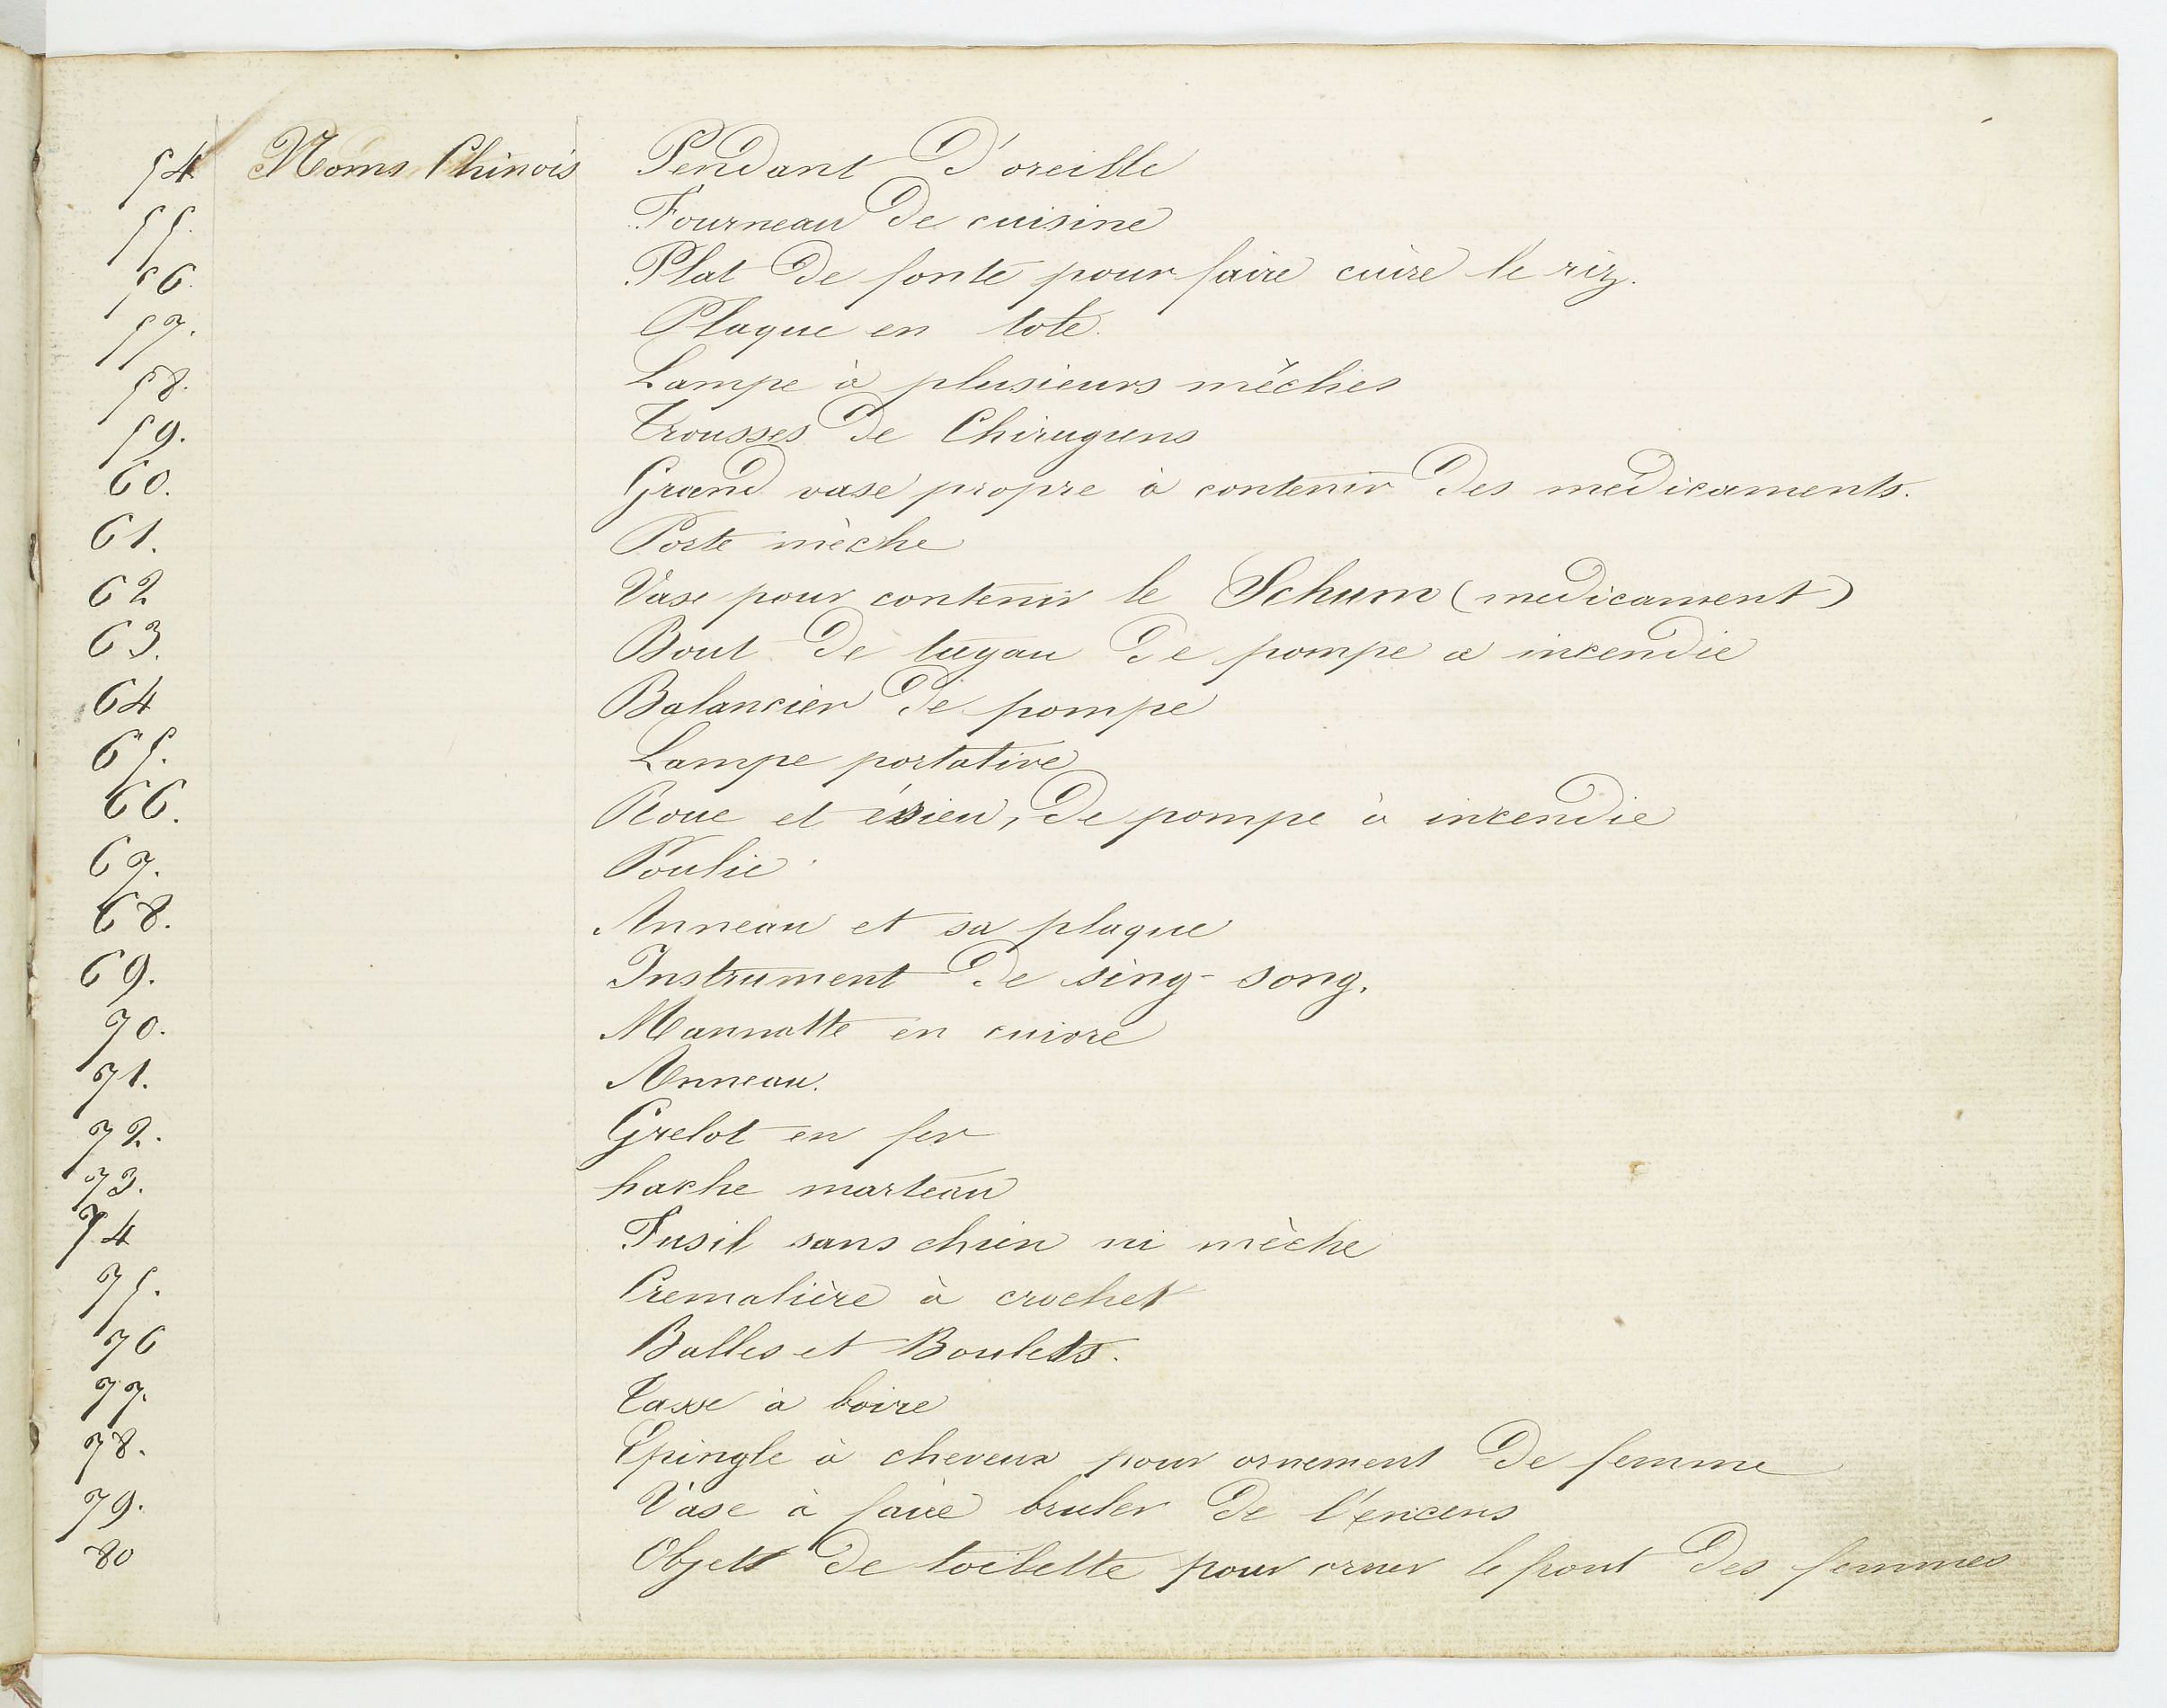 54 Noms Chinois Pendant d'oreille
55. Fourneau de cuisine
56. Plat de fonte pour faire cuire le riz.
57. Plaque en tole.
58. Lampe à plusieurs mèches
59. Trousses de Chirugiens
60. Grand vase propre à contenir des médicaments.
61. Porte mèche
62 Vase pour contenir le Schum (medicament)
63. Bout de tuyau de pompe a incendie
64 Balancier de pompe
65. Lampe portative
66. Roue et éssieu, de pompe à incendie
67. Poulie
68. Anneau et sa plaque
69. Instrument de sing-song.
70. Mannotte en cuivre
71. Anneau.
72. Grelot en fer
73. hache marteau
74 Fusil sans chien ni mèche
75. Cremalière à crochet
76 Balles et Boulets.
77. Tasse à boire
78. Epingle à cheveux pour ornement de femme
79. Vase à faire bruler de l'encens
80 Objets de toilette pour orner le front des femmes